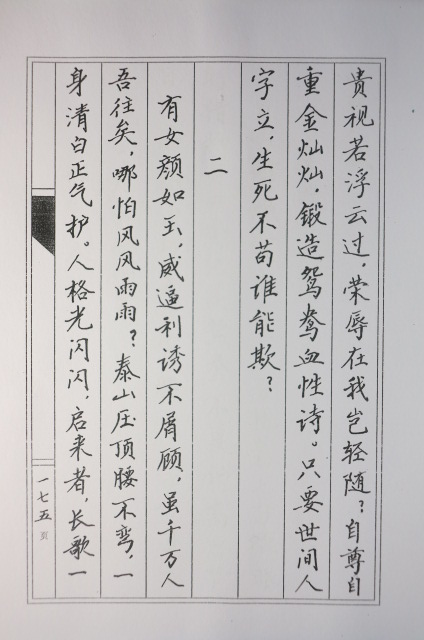 贵视若浮云过，荣辱在我岂轻随？自尊自
重金灿灿，锻造鸳鸯血性诗。只要世间人
字立，生死不苟谁能欺？
二
有女颜如玉，威逼利诱不屑顾，虽千万人
吾往矣，哪怕风风雨雨？泰山压顶腰不弯，一
身清白正气护。人格光闪闪，启来者，长歌一
一七五页